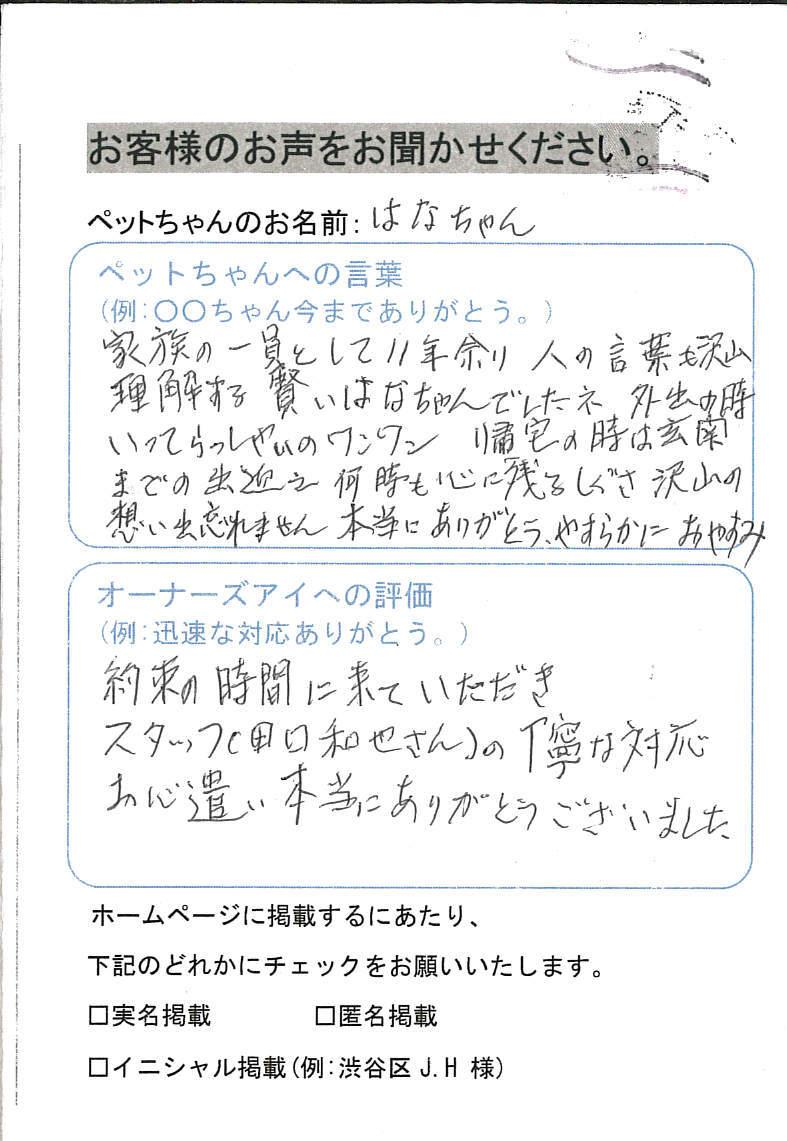 お客様のお声をお聞かせください。
ペットちゃんのお名前: はなちゃん
ペットちゃんへの言葉
(例:〇〇ちゃん今までありがとう。)
家族の一員として11年余り 人の言葉も沢山
理解する 賢いはなちゃんでしたネ 外出の時
いってらっしゃいのワンワン 帰宅の時は玄関
までの出迎え 何時も心に残るしぐさ 沢山の
想い出忘れません 本当にありがとう、やすらかに おやすみ
オーナーズアイへの評価
(例:迅速な対応ありがとう。)
約束の時間に来ていただき
スタッフ(田口和也さん)の丁寧な対応
お心遣い本当にありがとうございました
ホームページに掲載するにあたり、
下記のどれかにチェックをお願いいたします。
□実名掲載 □匿名掲載
□イニシャル掲載(例:渋谷区 J.H 様)